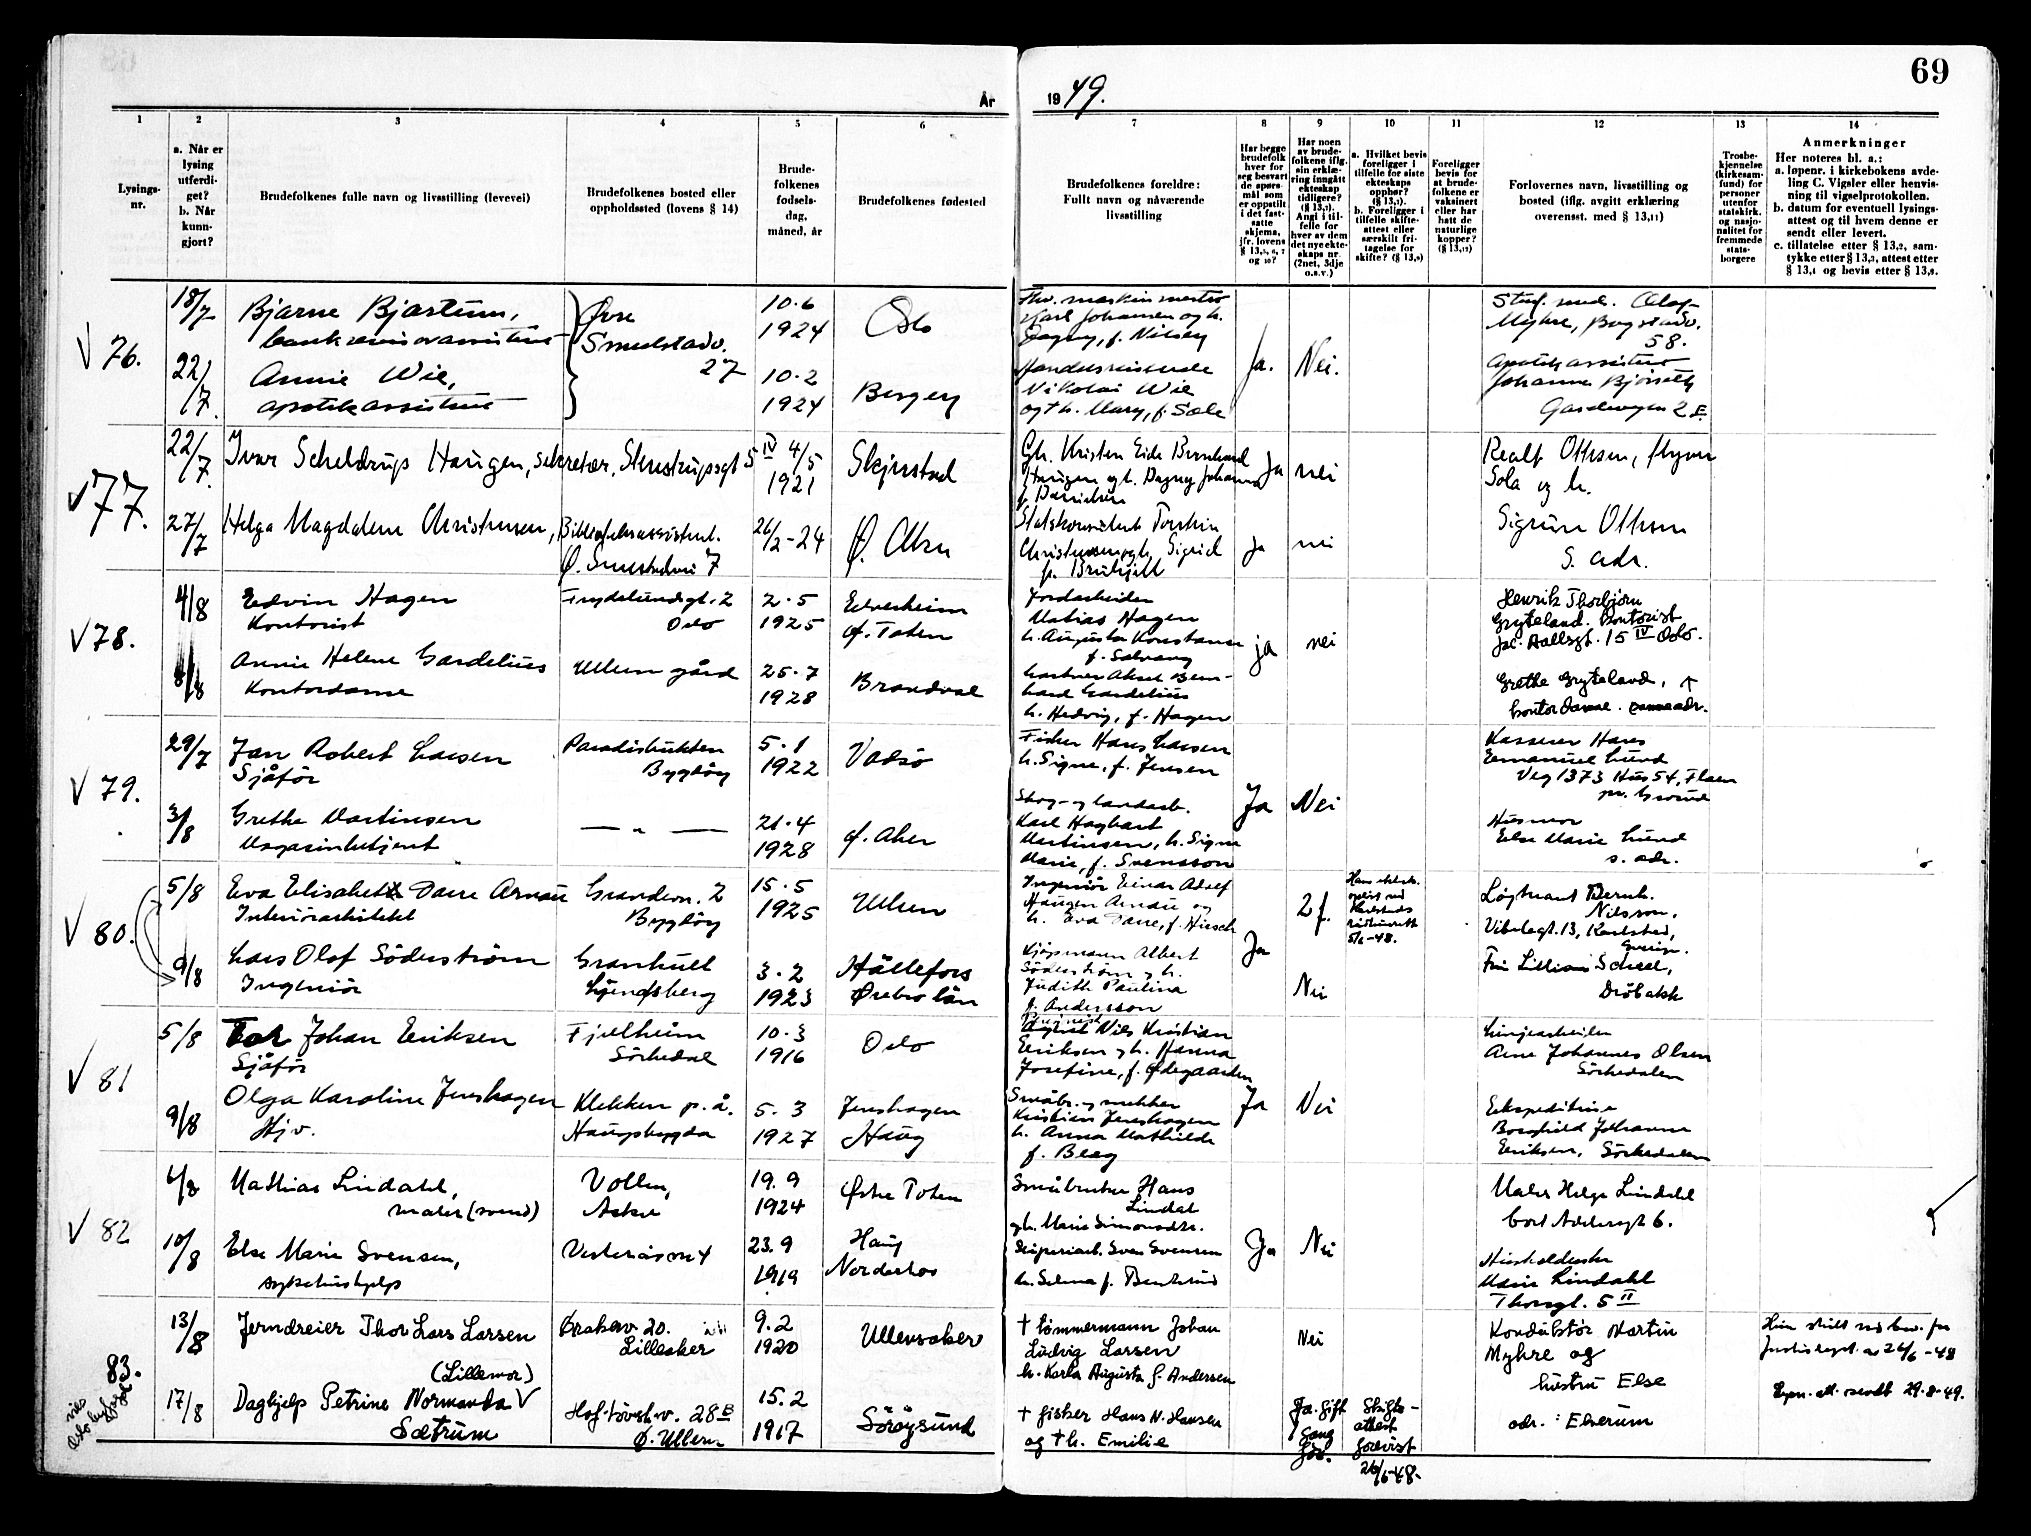 69
År
19 49.
1
2
3
4
5
6
7
8
9
10
11
12
13
14
Lysings-
nr.
a. Når er
lysing
utferdi-
get?
b. Når
kunn-
gjort?
Brudefolkenes fulle navn og livsstilling (levevei)
Brudefolkenes bosted eller
oppholdssted (lovens § 14)
Brude-
folkenes
fødsels-
dag,
måned, år
Brudefolkenes fødested
Brudefolkenes foreldre:
Fullt navn og nåværende
livsstilling
Har begge
brudefolk
hver for
seg besvart
de spørs-
mål som
er oppstilt
i det fast-
satte
skjema,
jfr. lovens
§ 13,
og 10?
Har noen
av brude-
folkene iflg.
sin erklæ-
ring inngått
ekteskap
tidligere?
(§ 13,7).
Angi i til-
felle for
hver av dem
det nye ekte-
skaps nr.
(2net, 3dje
o.s.v.)
a. Hvilket bevis
foreligger i
tilfelle for siste
ekteskaps
opphør?
b. Foreligger i
tilfelle skifte-
attest eller
særskilt fri-
tagelse for
skifte? (§ 13,9)
Foreligger
bevis for
at brude-
folkene er
vaksinert
eller har
hatt de
naturlige
kopper?
Forlovernes navn, livsstilling og
bosted (iflg. avgitt erklæring
overensst. med § 13,11)
Trosbe-
kjennelse
(kirkesam-
fund) for
personer
utenfor
statskirk.
og nasjo-
nalitet for
fremmede
stats-
borgere
Anmerkninger
Her noteres bl. a.:
a. løpenr. i kirkebokens avde-
ling C. Vigsler eller henvis-
ning til vigselprotokollen.
b. datum for eventuell lysings-
attest og til hvem denne er
sendt eller levert.
c. tillatelse etter § 13,2, sam-
tykke etter § 13,3, attest etter
§ 13,4 og bevis etter § 13,8.
V 76.
18/7
Bjarne Bjartum,
Øvre
Smestadv.
27
10.6
1924
Oslo
Karl Johansen og h.
Dagny, f. Nilsen
Stud. med. Olaf
Myhre, Bogstadv.
58.
22/7.
Annie Wie,
apotekassistent
10.2
1924
Bergen
Handelsreisende
Nikolai Wie
og h. Mary, f. Sæle
Ja.
Nei.
Apotekassistent
Johanne
V 77.
22/7.
Ivar Scheldrup Haugen, sekretær, Stenstrupsgt 5 IV
4/5
1921
Skjerstad
Haugen og h. Dagny Johanna
f. Danielsen
Ja
nei
Realf Ottesen, flyver
Sola og h.
27/7
Helga Magdalene Christensen,
Bibliotekassistent.
Ø. Smestadvei 7
26/2-24
Ø. Aker
Statskonsulent Torstein
Christensen og h. Sigrid
ja
nei
Sigrun Ottesen
S. adr.
V 78.
4/8
Edvin Hagen
Kontorist
Frydenlundgt. 2
Oslo
2.5
1925
Ø. Toten
Jordarbeider
Matias Hagen
h. Augusta Konstanse
Henrik Thorbjørn
Gryteland. Kontorist
Jac. Aallsgt. 15 IV Oslo.
8/8
Annie Helene Gardelius
Kontordame
Ullern gård
25.7
1928
Brandval
Gartner Aksel Bern-
hard Gardelius
h. Hedvig, f. Hagen
ja
nei
Grethe Gryteland,
kontordame. samme adr.
V 79.
29/7
Jan Robert Larsen
Sjåfør
Paradisbukten
Bygdøy
5.1
1922
Vadsø
Fisker Hans Larsen
h. Signe, f. Jensen
Kasserer Hans
Emanuel Lund
Veg 1373 Hus 54, Flaen
pr. Grorud
3/8
Grethe Martinsen
Magasinbetjent
— " —
21.4
1928
Ø. Aker
Skog- og landarb.
Karl Hagbart
Martinsen, h. Signe
Marie, f. Svensson
Ja
Nei
Husmor
Else Marie Lund
s. adr.
V 80.
5/8
Eva Elisabeth Daae Arnau
Interiørarkitekt
Grandevn. 2
Bygdøy
15.5
1925
Ullern
Ingeniør Einar Adolf
Haugen Arnau og
h. Eva Daae, f. Hirsch
2 f.
5/6-48.
Løjtnant Bernh.
Nilsson,
Vibelagt. 13, Karlstad,
Sverige.
9/8
Lars Olof Söderström
Ingeniör
Granhult
3.2
1923
Hällefors
Örebro län
Kjøpmann Albert
Söderström og h.
Judith Paulina
f. Andersson
Ja
Nei
Frk. Lillian Scheel,
Drøbak
V 81
5/8
Tor Johan Eriksen
Sjåfør
Fjellheim
Sørkedal
10.3
1916
Oslo
Nils Kristian
Eriksen og h. Hanna
Josefine, f. Ødegaarden
Linjearbeider
Arne Johannes Olsen
Sørkedalen
9/8
Olga Karoline Jenshagen
Hjv.
Klekken p.å.
Haugsbygda
5.3
1927
Jenshagen
Haug
Kristian Jenshagen
h. Anna Mathilde
f. Bleg
Ja
Nei
Ekspeditrise
Borghild Johanne
Eriksen, Sørkedalen
V 82
6/8
Mathias Lindahl,
maler (svend)
Vollen,
Asker
19.9
1924
Østre Toten
Småbruker Hans
Lindal
og h. Marie Simonsdtr.
Maler Helge Lindahl
10/8
Else Marie Svensen,
sykehushjelp
Vesteråsvn 4
23.9
1919
Haug
Norderhov
Sven Svensen
h. Selma f. Benterud
Ja
Nei
Husholderske
Marie Lindahl
Thorsgt. 5 II
83.
13/8
Jerndreier Thor Lars Larsen
Ørakerv. 20.
Lilleaker
9.2
1920
Ullensaker
† tømmermann Johan
Ludvig Larsen
h. Karla Augusta f. Andersen
Nei
Konduktør Martin
Myhre og
hustru Else
adr.: Elverum
17/8
(Lillemor)
Daghjelp Petrine Normanda V
Sætrum
Hoffsløvstv. 28 B
Ø. Ullern
15.2
1917
Sørøysund
† fisker Hans N. Hansen
og † h. Emilie
Ja. gift
gang
før.
Skifte-
attest
forevist
26/6-48.
Hun skilt ved bev. fra
Justisdept. av 26/6-48
Eksp. att. sendt 29.8.49.